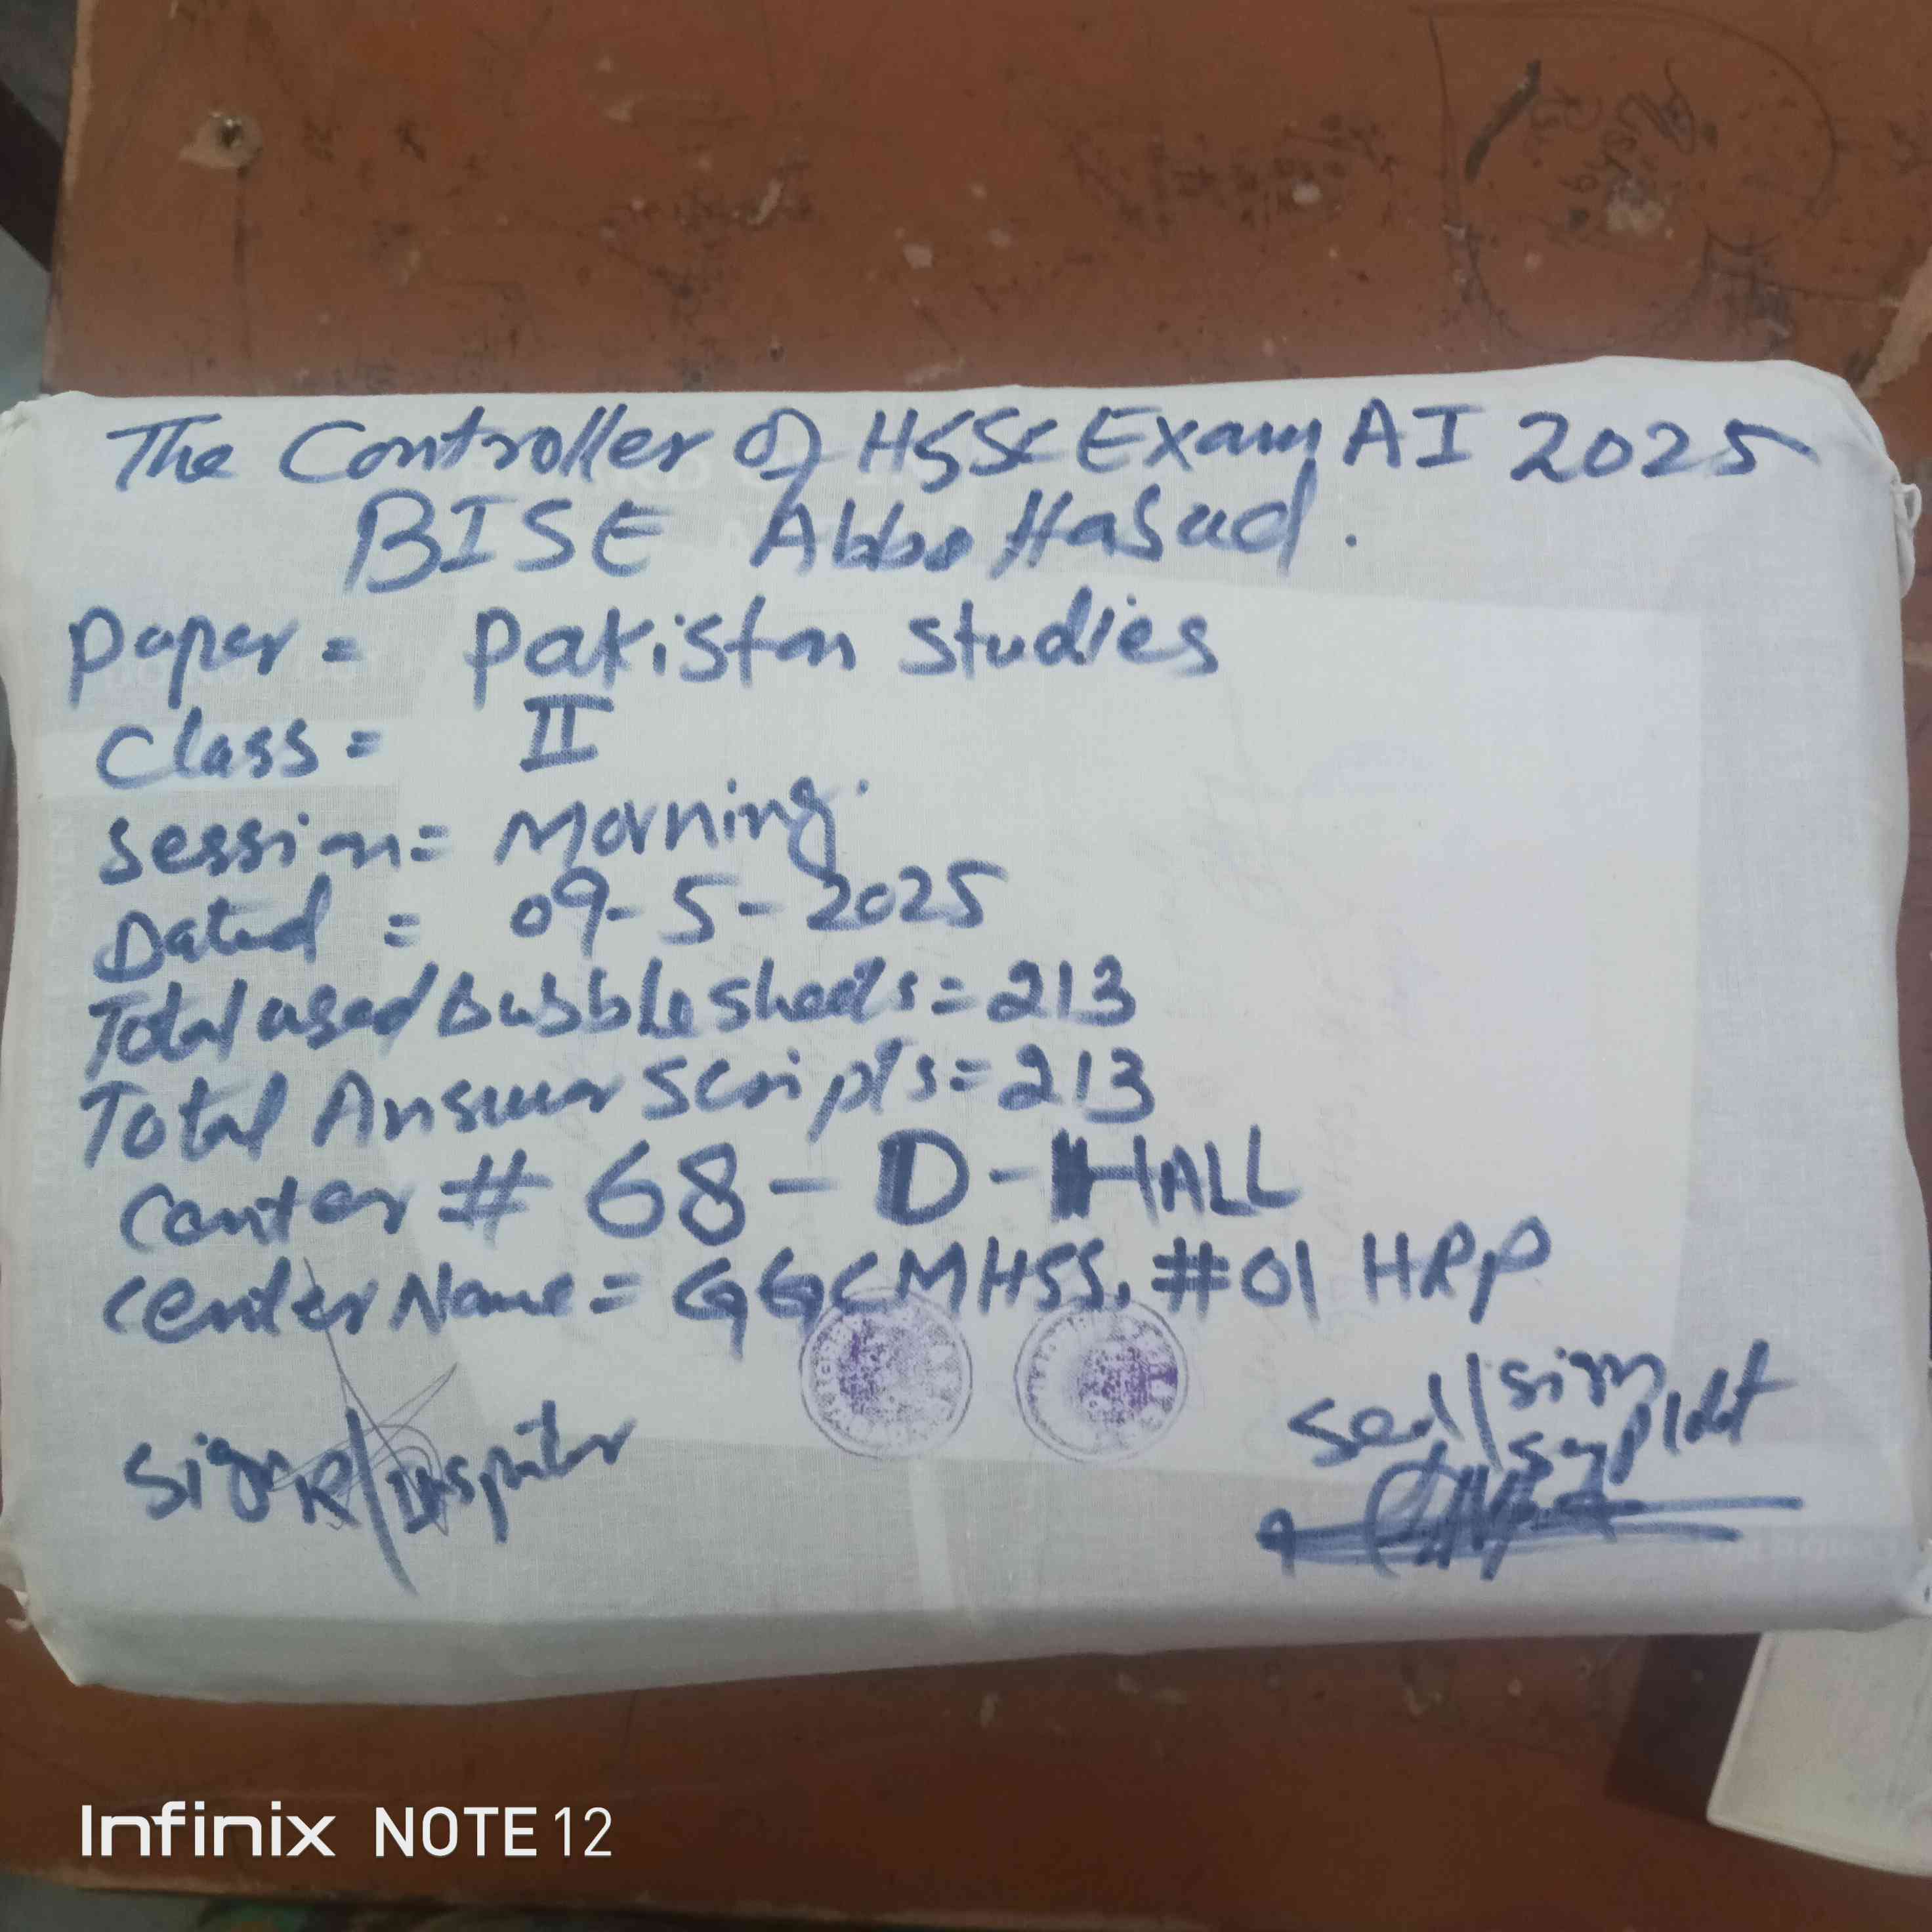 The Controller of HSSC Exam AI 2025
BISE Abbottabad.
Paper = Pakistan Studies
Class = II
Session = Morning.
Dated = 09-5-2025
Total used bubble sheets = 213
Total Answer Scripts = 213
Center # 68 - D - HALL
Center Name = GGCMHSS. #01 HRP
Sign R/Inspector
Seal/Sign
Infinix NOTE 12